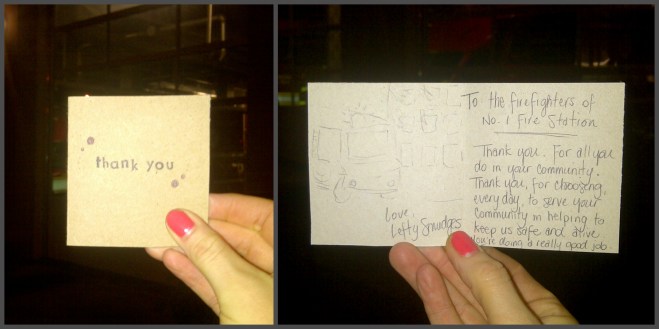 thank you
To the firefighters of
No. 1 Fire Station
Thank you. For all you
do in your community.
Thank you, for choosing,
every day, to serve your
community in helping to
keep us safe and alive.
You're doing a really good job.
Love,
Lefty Smudges